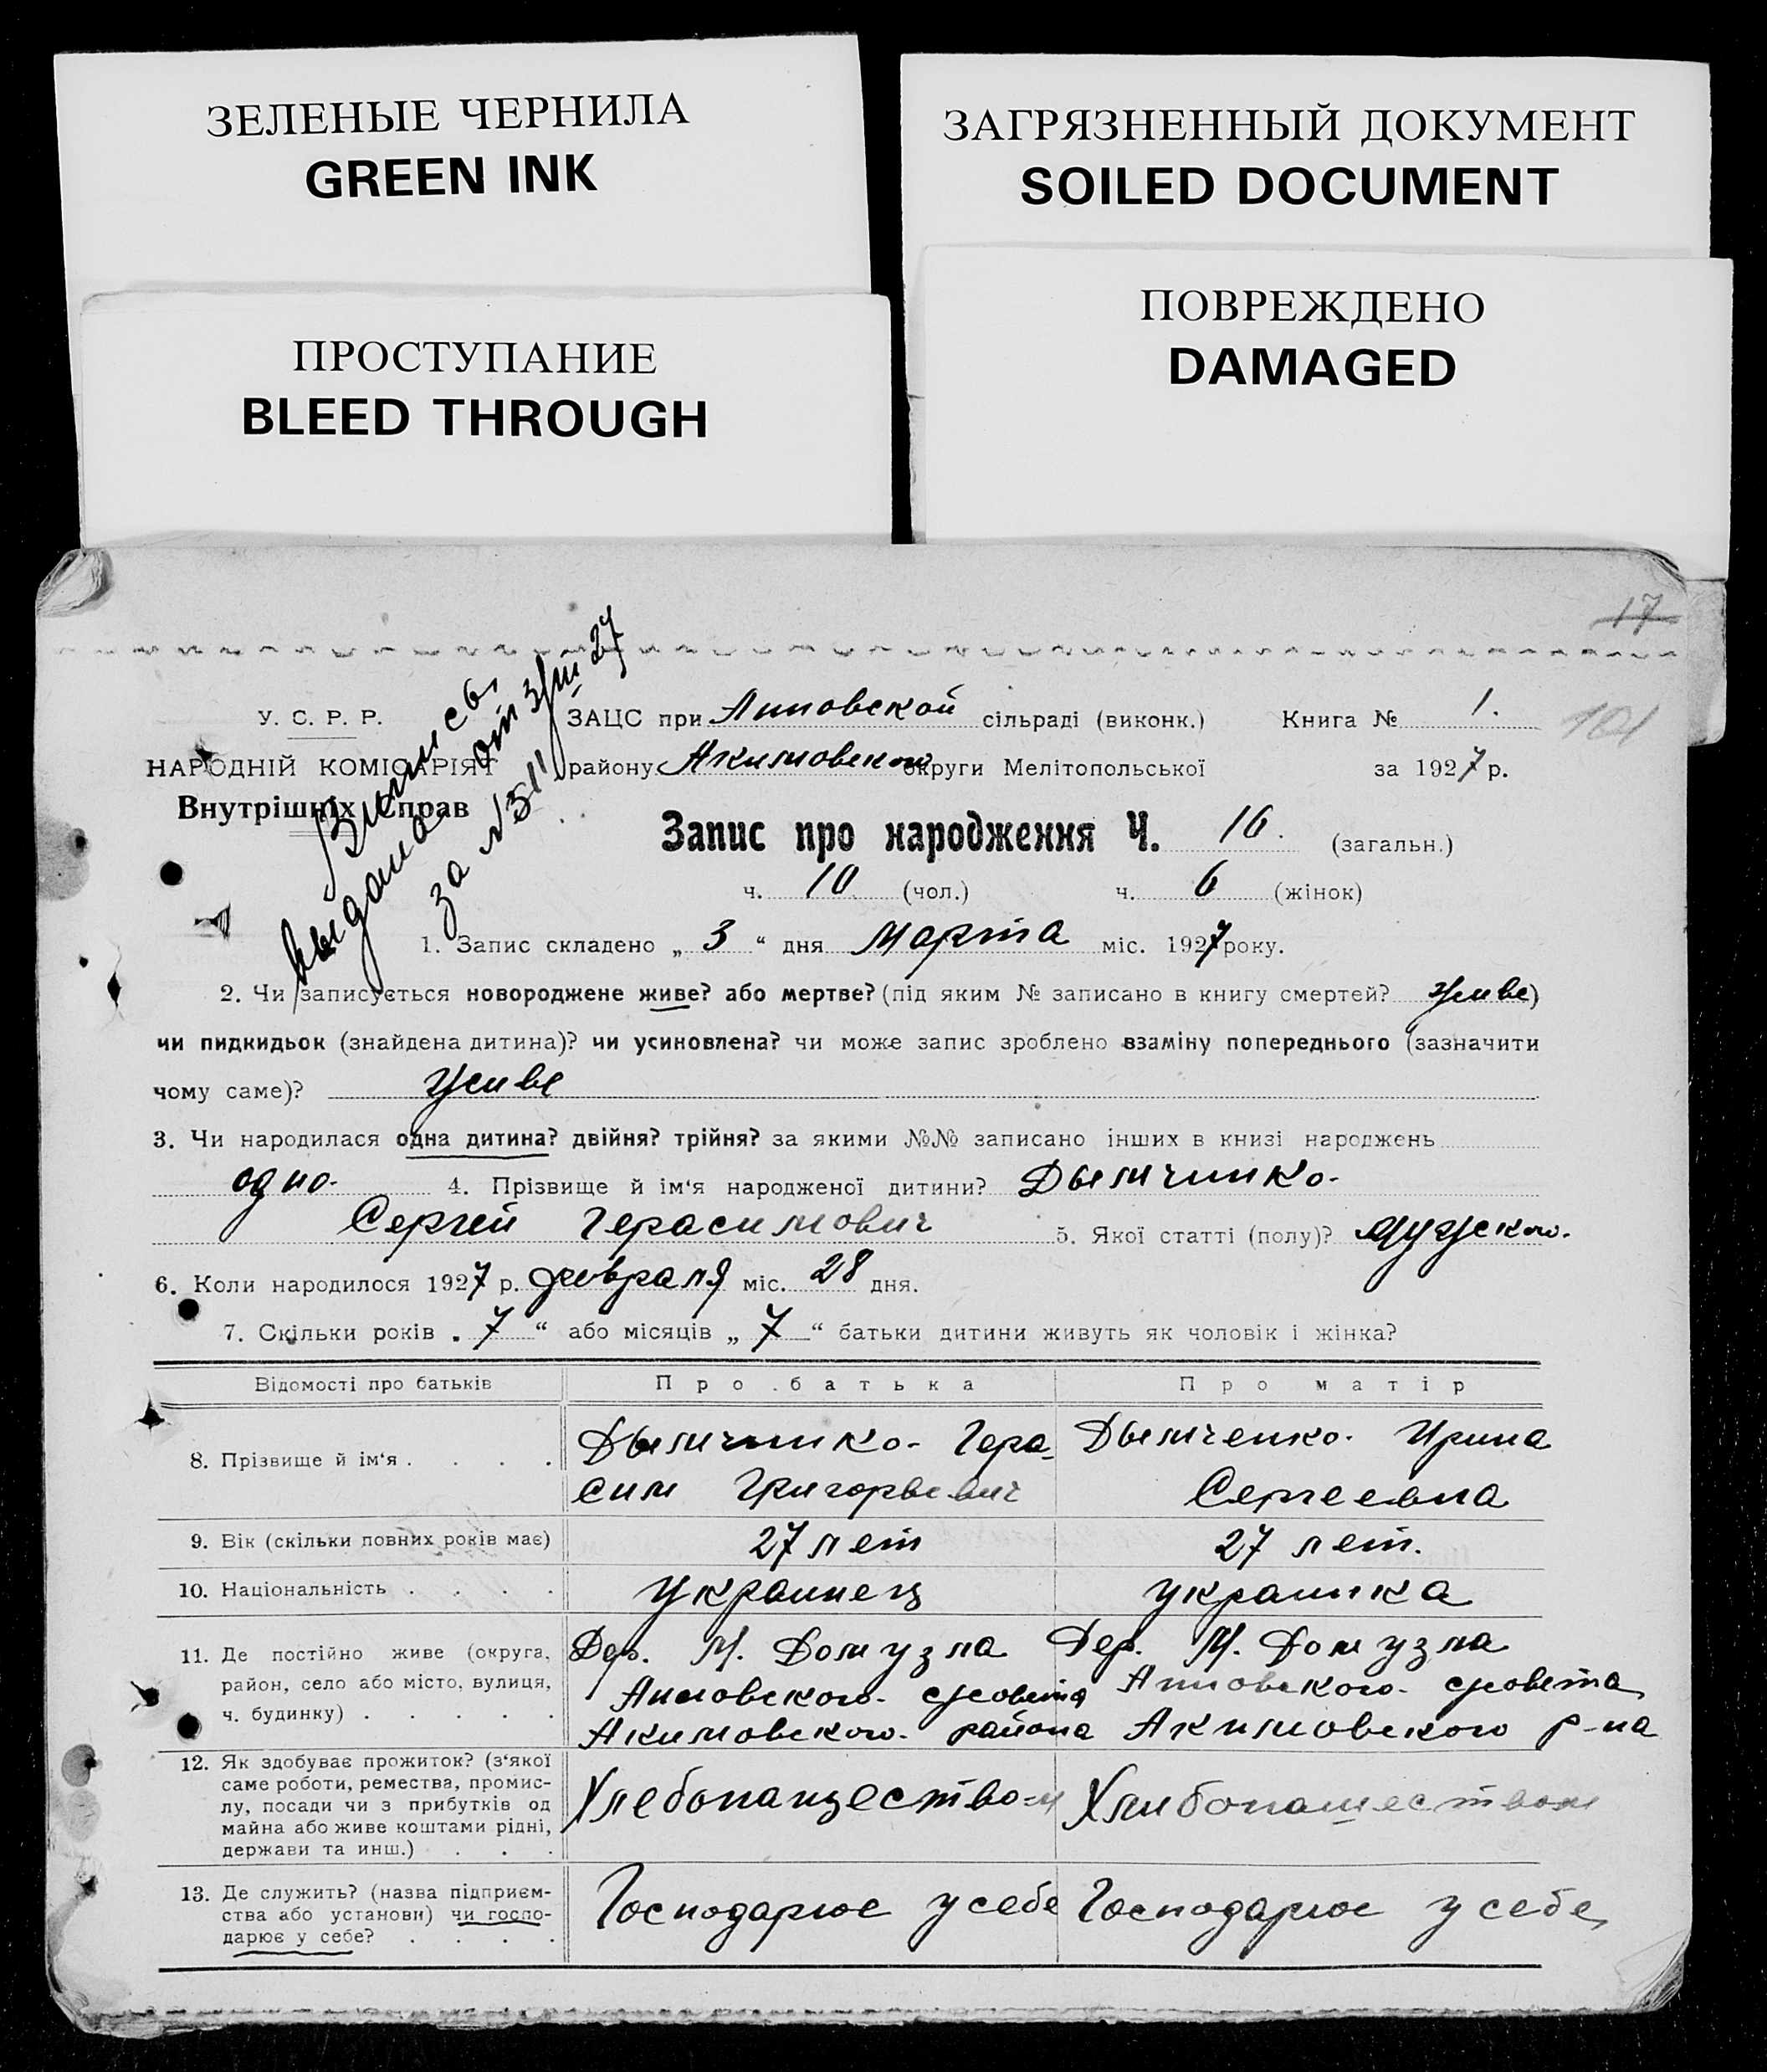 ЗЕЛЕНЫЕ ЧЕРНИЛА
GREEN INK
ЗАГРЯЗНЕННЫЙ ДОКУМЕНТ
SOILED DOCUMENT
ПРОСТУПАНИЕ
BLEED THROUGH
ПОВРЕЖДЕНО
DAMAGED
17
101
У. С. Р. Р.
НАРОДНІЙ КОМІСАРІЯТ
Внутрішніх Справ
Выпись
выдана от 3/III 27
за №
ЗАЦС при Анновской сільраді (виконк.) Книга № 1.
району Акимовского округи Мелітопольської за 1927 р.
Запис про народження Ч. 16. (загальн.)
ч. 10 (чол.) ч. 6 (жінок)
1. Запис складено „ 3 “ дня марта міс. 1927 року.
2. Чи записується новороджене живе? або мертве? (під яким № записано в книгу смертей? живе)
чи пидкидьок (знайдена дитина)? чи усиновлена? чи може запис зроблено взаміну попереднього (зазначити
чому саме)? живе
3. Чи народилася одна дитина? двійня? трійня? за якими №№ записано інших в книзі народжень
одно. 4. Прізвище й ім‘я народженої дитини? Дымчинко.
Сергей Герасимович 5. Якої статті (полу)? мужского.
6. Коли народилося 1927 р. февраля міс. 28 дня.
7. Скільки років „ 7 “ або місяців „ 7 “ батьки дитини живуть як чоловік і жінка?
Відомості про батьків Про батька Про матір
8. Прізвище й ім‘я . . . . Дымчинко. Гера- Дымченко. Ирина
сим Григорьевич Сергеевна
9. Вік (скільки повних років має) 27 лет 27 лет.
10. Національність . . . . украинец украинка
11. Де постійно живе (округа, Дер. М. Домузла Дер. М. Домузла
район, село або місто, вулиця, Анновского с/совета Анновского с/совета
ч. будинку) . . . . . Акимовского района Акимовского р-на
12. Як здобуває прожиток? (з‘якої
саме роботи, ремества, промис-
лу, посади чи з прибутків од Хлебопашеством Хлибопашеством
майна або живе коштами рідні,
держави та инш.) . . .
13. Де служить? (назва підприєм-
ства або установи) чи госпо- Господарює у себе Господарює у себе
дарює у себе? . . . .